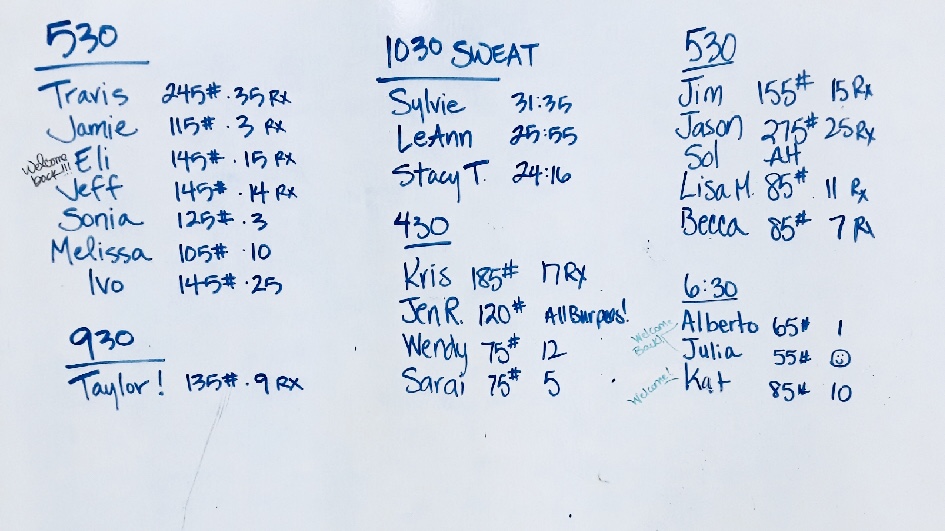 530
Travis 245# · 35 Rx
Jamie 115# · 3 Rx
Welcome back!!!
Eli 145# · 15 Rx
Jeff 145# · 14 Rx
Sonia 125# · 3
Melissa 105# · 10
Ivo 145# · 25
930
Taylor! 135# · 9 Rx
1030 SWEAT
Sylvie 31:35
LeAnn 25:55
Stacy T. 24:16
430
Kris 185# 17 Rx
Jen R. 120# All Burpees!
Wendy 75# 12
Sarai 75# 5
530
Jim 155# 15 Rx
Jason 275# 25 Rx
Sol
Lisa M. 85# 11 Rx
Becca 85# 7 Rx
6:30
Welcome Back!
Alberto 65# 1
Julia 55# ☺
Welcome!
Kat 85# 10